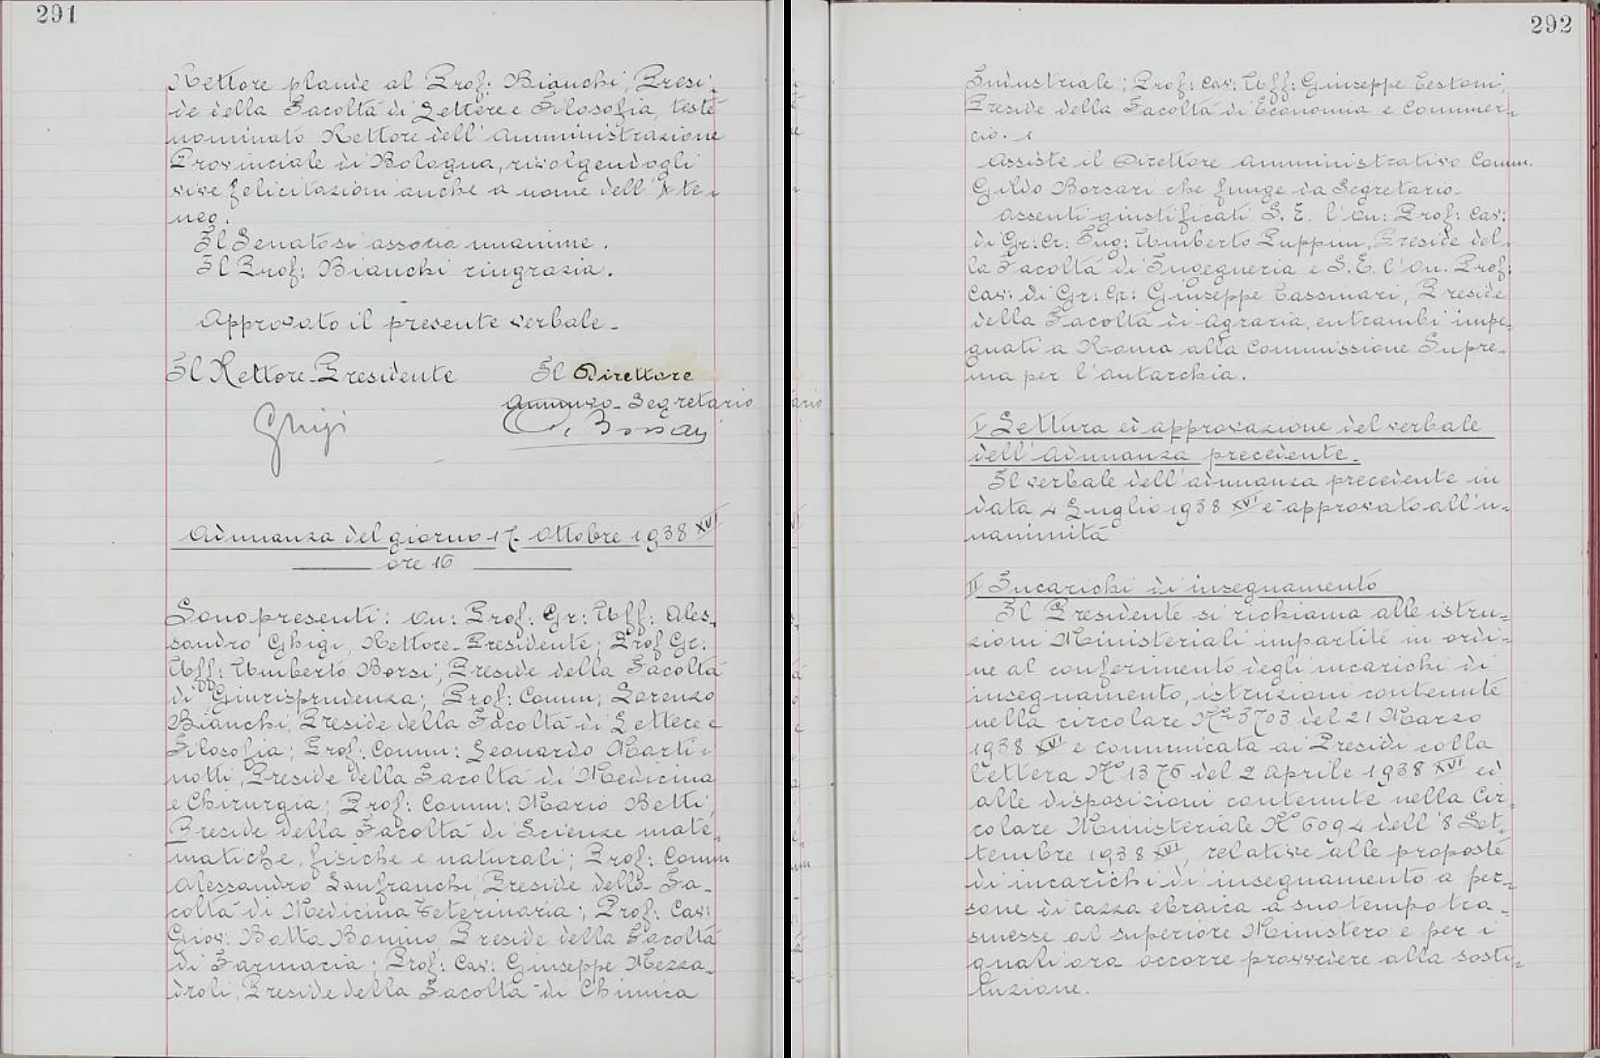 291
Rettore plaude al Prof: Bianchi, Presi-
de della Facoltà di Lettere e Filosofia, testè
nominato Rettore dell'Amministrazione
Provinciale di Bologna, rivolgendogli
vive felicitazioni anche a nome dell'Ate-
neo.
Il Senato si associa unanime.
Il Prof: Bianchi ringrazia.
Approvato il presente verbale.
Il Rettore-Presidente
Il Direttore
Ammvo-Segretario
Ghigi
Borsari
Adunanza del giorno 17 Ottobre 1938 XVI
ore 16
Sono presenti: On: Prof: Gr: Uff: Ales-
sandro Ghigi, Rettore-Presidente; Prof Gr:
Uff: Umberto Borsi, Preside della Facoltà
di Giurisprudenza; Prof: Comm: Lorenzo
Bianchi, Preside della Facoltà di Lettere e
Filosofia; Prof: Comm: Leonardo Marti-
notti, Preside della Facoltà di Medicina
e Chirurgia; Prof: Comm: Mario Betti,
Preside della Facoltà di Scienze mate-
matiche, fisiche e naturali; Prof: Comm
Alessandro Lanfranchi, Preside della Fa-
coltà di Medicina Veterinaria; Prof: Cav:
Giov: Batta Bonino, Preside della Facoltà
di Farmacia; Prof: Cav: Giuseppe Mezza-
droli, Preside della Facoltà di Chimica
292
Industriale; Prof: Cav: Uff: Giuseppe Testoni,
Preside della Facoltà di Economia e Commer-
cio.
Assiste il Direttore Amministrativo Comm.
Gildo Borsari che funge da Segretario.
Assenti giustificati S. E. l'On: Prof: Cav:
di Gr: Cr: Ing: Umberto Puppini, Preside del-
la Facoltà di Ingegneria e S. E. l'On. Prof:
Cav: di Gr: Cr: Giuseppe Tassinari, Preside
della Facoltà di Agraria, entrambi impe-
gnati a Roma alla Commissione Supre-
ma per l'autarchia.
I Lettura ed approvazione del verbale
dell'Adunanza precedente.
Il verbale dell'adunanza precedente in
data 4 Luglio 1938 XVI è approvato all'u-
nanimità
II Incarichi di insegnamento
Il Presidente si richiama alle istru-
zioni Ministeriali impartite in ordi-
ne al conferimento degli incarichi di
insegnamento, istruzioni contenute
nella circolare N° 3703 del 21 Marzo
1938 XVI e comunicata ai Presidi colla
lettera N° 1376 del 2 Aprile 1938 XVI ed
alle disposizioni contenute nella Cir-
colare Ministeriale N° 6094 dell'8 Set-
tembre 1938 XVI, relative alle proposte
di incarichi di insegnamento a per-
sone di razza ebraica a suo tempo tra-
smesse al superiore Ministero e per i
quali ora occorre provvedere alla sosti-
tuzione.